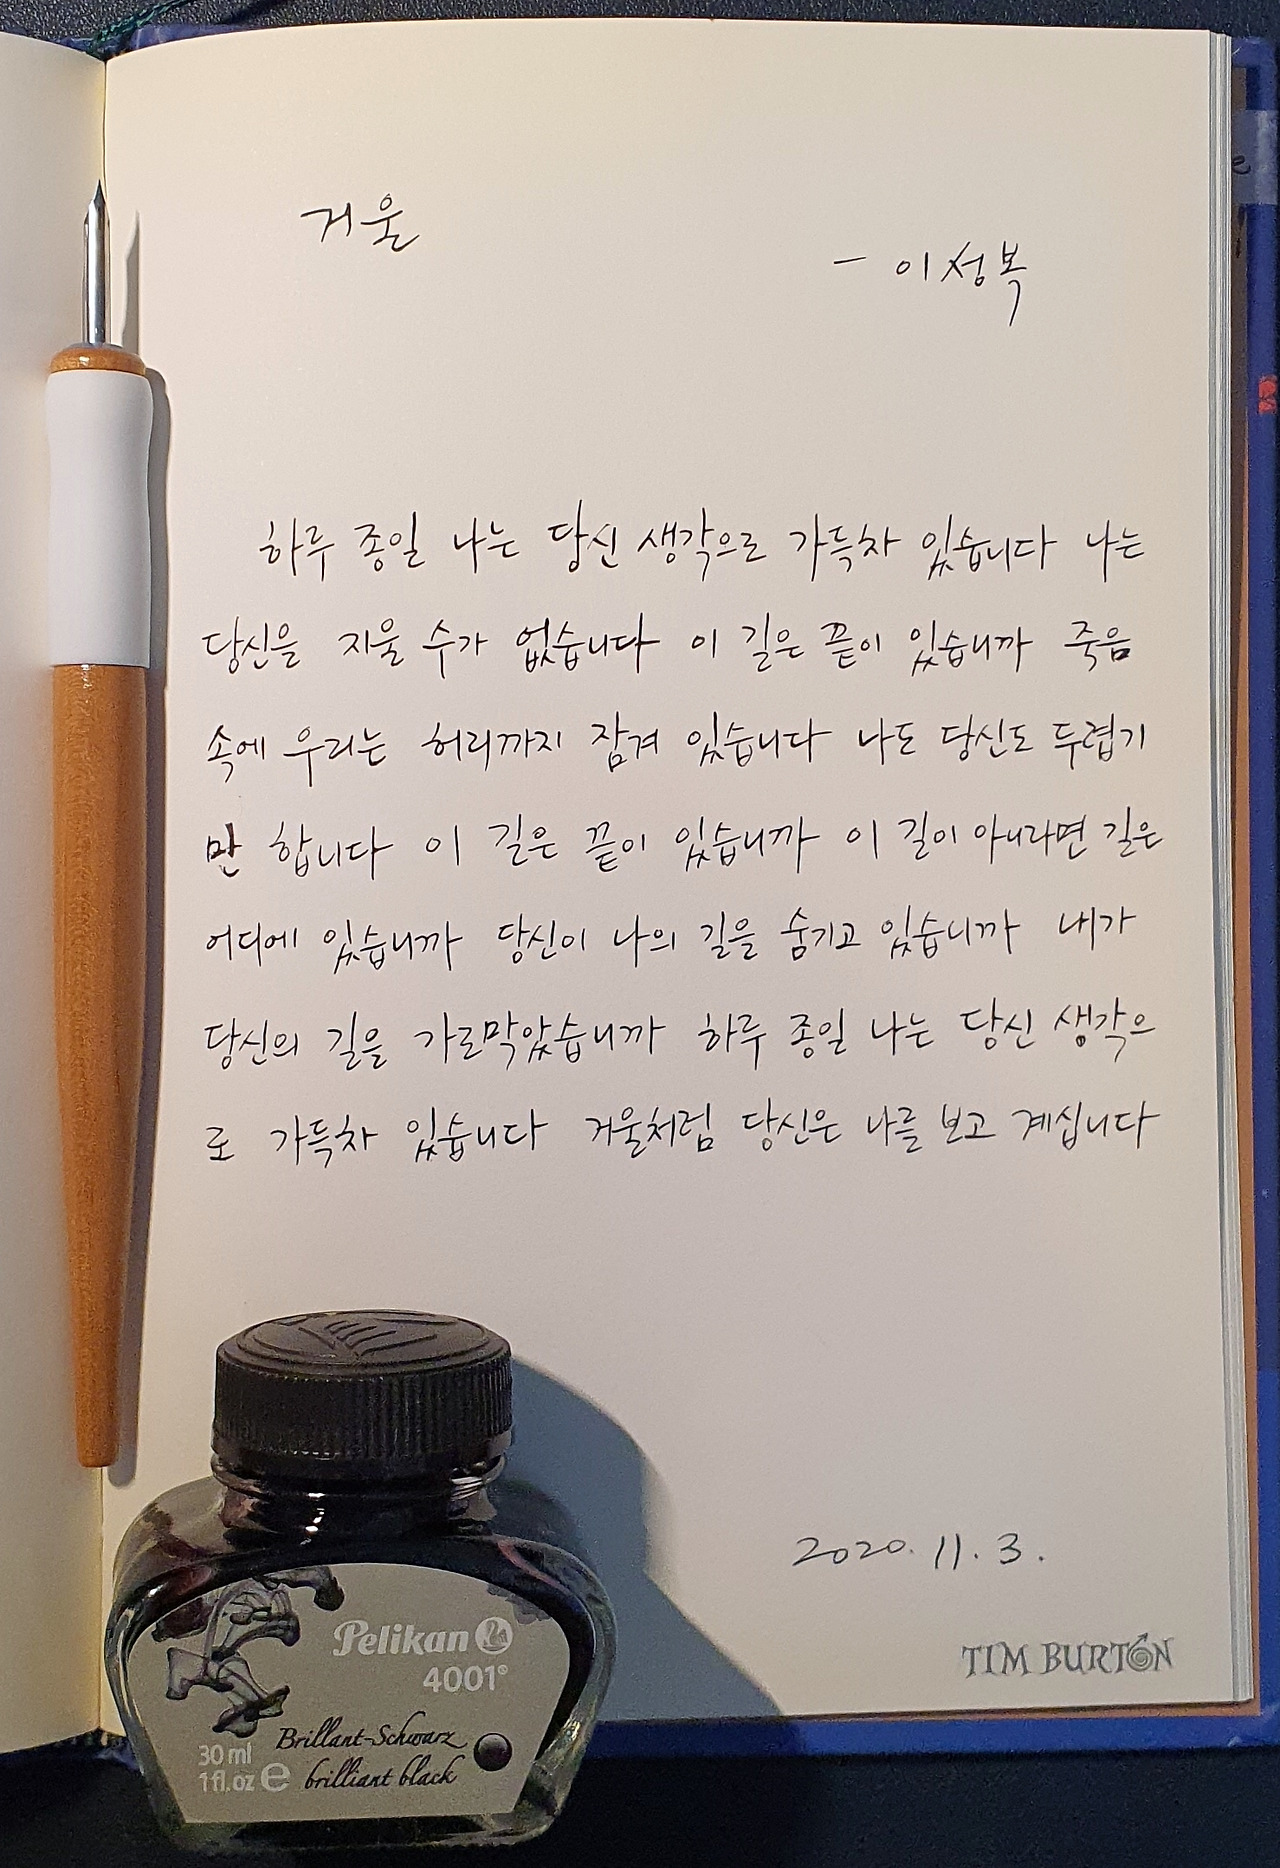 거울
- 이성복
하루 종일 나는 당신 생각으로 가득차 있습니다 나는
당신을 지울 수가 없습니다 이 길은 끝이 있습니까 죽음
속에 우리는 허리까지 잠겨 있습니다 나도 당신도 두렵기
만 합니다 이 길은 끝이 있습니까 이 길이 아니라면 길은
어디에 있습니까 당신이 나의 길을 숨기고 있습니까 내가
당신의 길을 가로막았습니까 하루 종일 나는 당신 생각으
로 가득차 있습니다 거울처럼 당신은 나를 보고 계십니다
2020. 11. 3.
TIM BURTON
Pelikan
4001®
Brillant-Schwarz
brilliant black
30 ml
1 fl.oz e